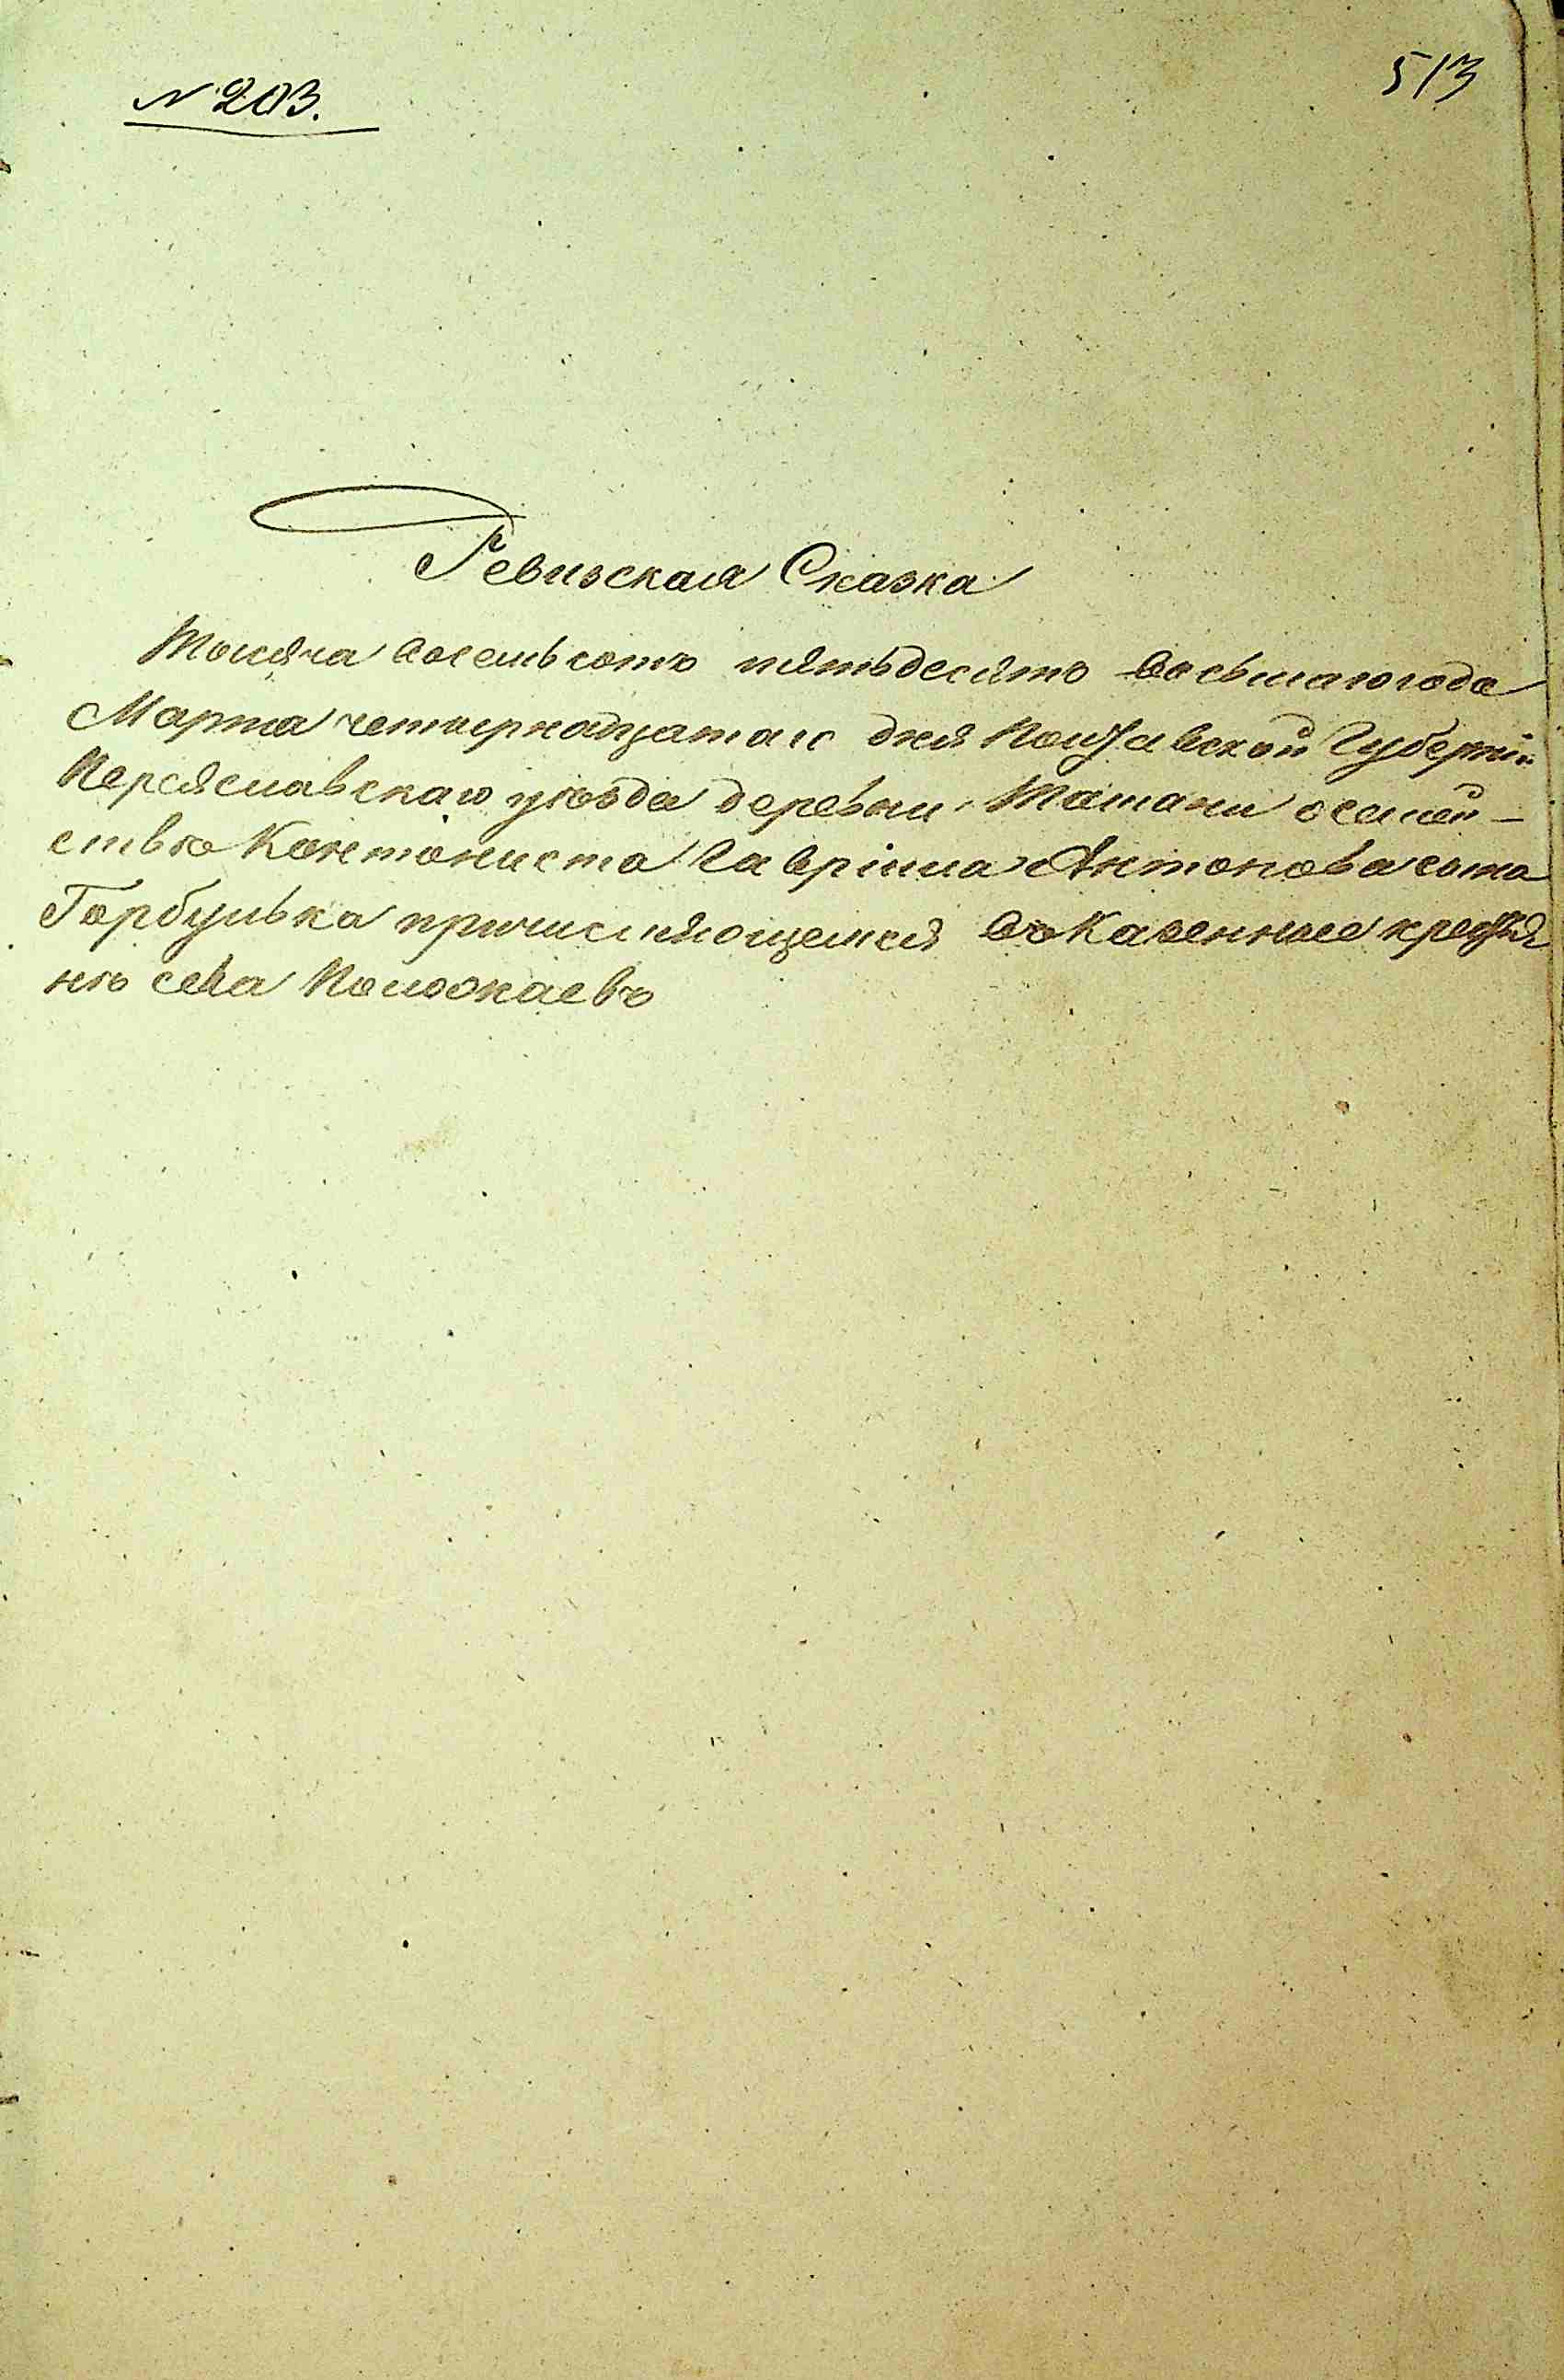 N 203.
513
Ревизская Сказка
Тысяча восемь сотъ пятьдесятъ восьмаго года
Марта четырнадцатаго дня Полтавской Губерніи
Переяславскаго уѣзда деревни Ташани о семей-
ствѣ Кантониста Гавріила Антонова сына
Горбулька причисляющемся въ Казенные крестья
нѣ села Положаевъ